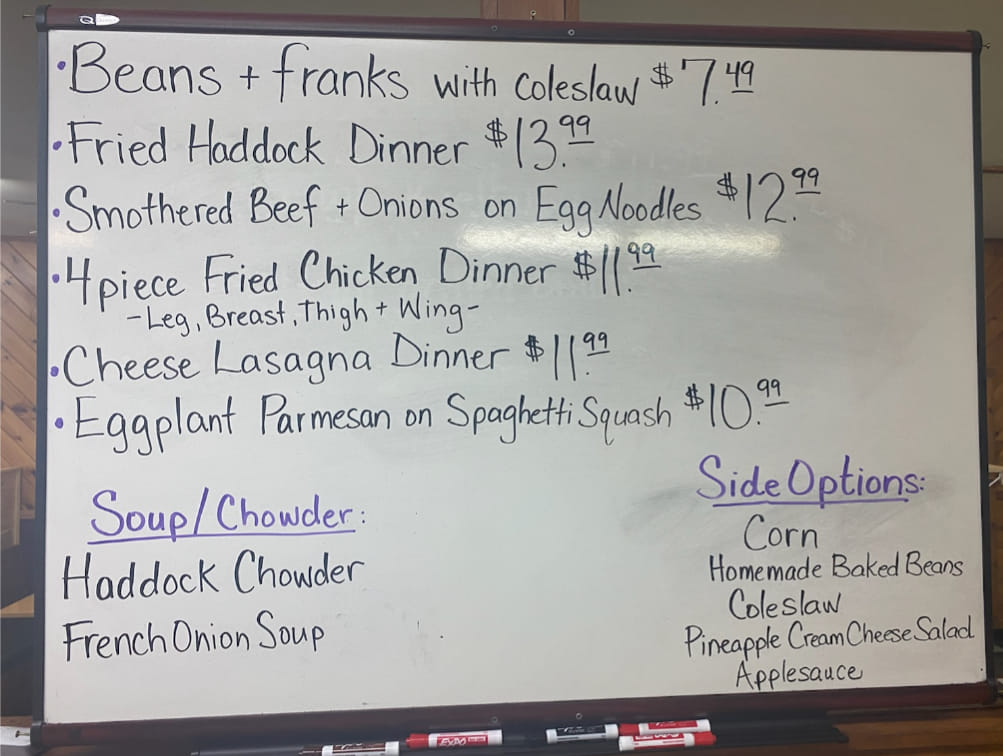 • Beans + franks with Coleslaw $7.49
• Fried Haddock Dinner $13.99
• Smothered Beef + Onions on Egg Noodles $12.99
• 4 piece Fried Chicken Dinner $11.99
- Leg, Breast, Thigh + Wing -
• Cheese Lasagna Dinner $11.99
• Eggplant Parmesan on Spaghetti Squash $10.99
Soup/Chowder:
Haddock Chowder
French Onion Soup
Side Options:
Corn
Homemade Baked Beans
Coleslaw
Pineapple Cream Cheese Salad
Applesauce
EXPO